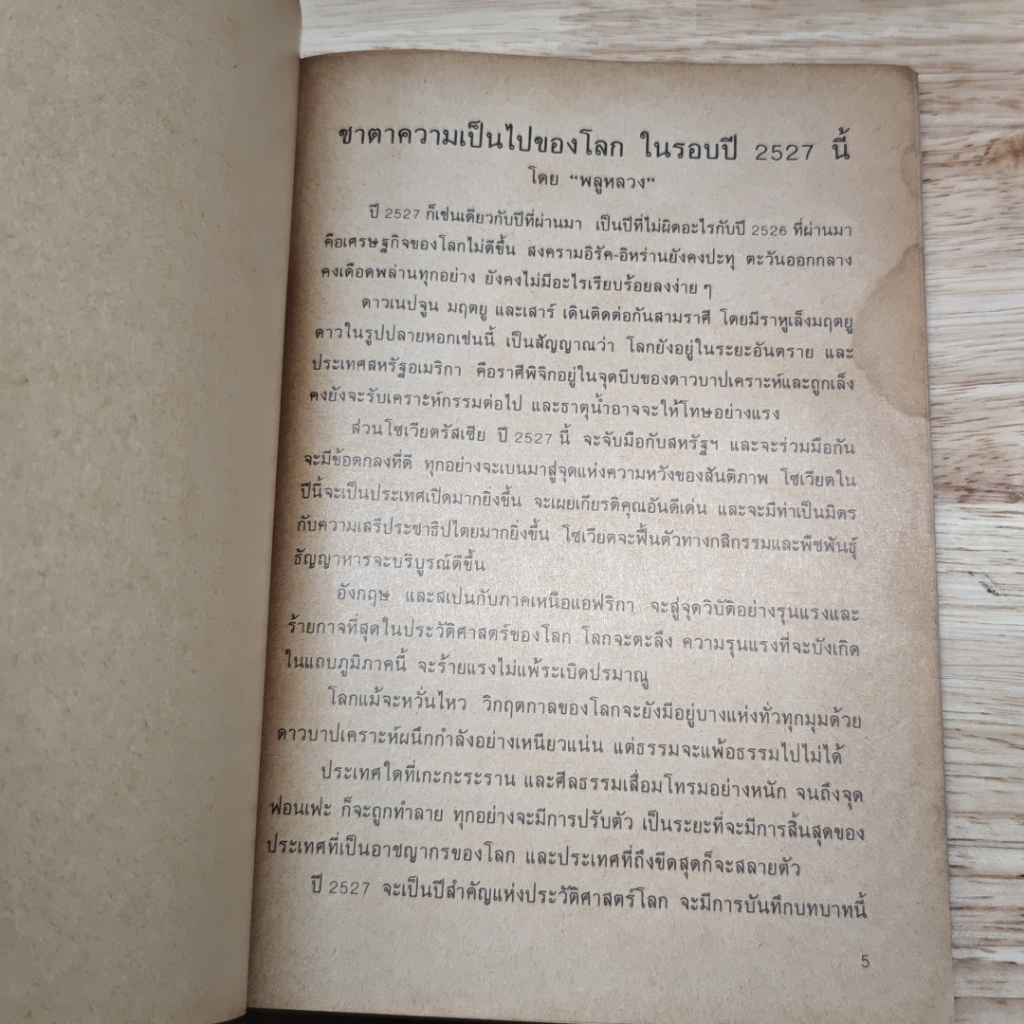 ชาตาความเป็นไปของโลก ในรอบปี 2527 นี้
โดย “พลูหลวง”
ปี 2527 ก็เช่นเดียวกับปีที่ผ่านมา เป็นปีที่ไม่ผิดอะไรกับปี 2526 ที่ผ่านมา
คือเศรษฐกิจของโลกไม่ดีขึ้น สงครามอิรัค-อิหร่านยังคงปะทุ ตะวันออกกลาง
คงเดือดพล่านทุกอย่าง ยังคงไม่มีอะไรเรียบร้อยลงง่าย ๆ
ดาวเนปจูน มฤตยู และเสาร์ เดินติดต่อกันสามราศี โดยมีราหูเล็งมฤตยู
ดาวในรูปปลายหอกเช่นนี้ เป็นสัญญาณว่า โลกยังอยู่ในระยะอันตราย และ
ประเทศสหรัฐอเมริกา คือราศีพิจิกอยู่ในจุดบีบของดาวบาปเคราะห์และถูกเล็ง
คงยังจะรับเคราะห์กรรมต่อไป และธาตุน้ำอาจจะให้โทษอย่างแรง
ส่วนโซเวียตรัสเซีย ปี 2527 นี้ จะจับมือกับสหรัฐฯ และจะร่วมมือกัน
จะมีข้อตกลงที่ดี ทุกอย่างจะเบนมาสู่จุดแห่งความหวังของสันติภาพ โซเวียตใน
ปีนี้จะเป็นประเทศเปิดมากยิ่งขึ้น จะเผยเกียรติคุณอันดีเด่น และจะมีท่าเป็นมิตร
กับความเสรีประชาธิปไตยมากยิ่งขึ้น โซเวียตจะฟื้นตัวทางกสิกรรมและพืชพันธุ์
ธัญญาหารจะบริบูรณ์ดีขึ้น
อังกฤษ และสเปนกับภาคเหนือแอฟริกา จะสู่จุดวิบัติอย่างรุนแรงและ
ร้ายกาจที่สุดในประวัติศาสตร์ของโลก โลกจะตะลึง ความรุนแรงที่จะบังเกิด
ในแถบภูมิภาคนี้ จะร้ายแรงไม่แพ้ระเบิดปรมาณู
โลกแม้จะหวั่นไหว วิกฤตกาลของโลกจะยังมีอยู่บางแห่งทั่วทุกมุมด้วย
ดาวบาปเคราะห์ผนึกกำลังอย่างเหนียวแน่น แต่ธรรมจะแพ้อธรรมไปไม่ได้
ประเทศใดที่เกะกะระราน และศีลธรรมเสื่อมโทรมอย่างหนัก จนถึงจุด
ฟอนเฟะ ก็จะถูกทำลาย ทุกอย่างจะมีการปรับตัว เป็นระยะที่จะมีการสิ้นสุดของ
ประเทศที่เป็นอาชญากรของโลก และประเทศที่ถึงขีดสุดก็จะสลายตัว
ปี 2527 จะเป็นปีสำคัญแห่งประวัติศาสตร์โลก จะมีการบันทึกบทบาทนี้
5